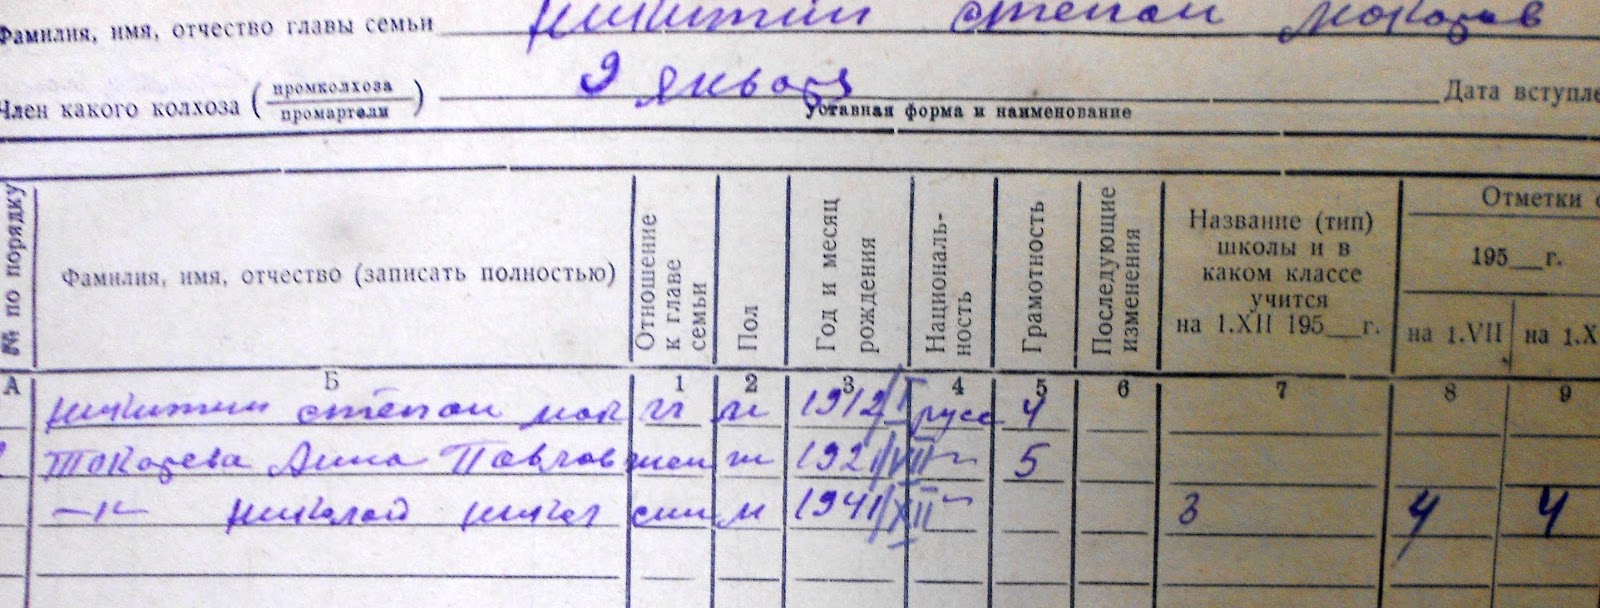 Фамилия, имя, отчество главы семьи Никитин Степан Макаров
Член какого колхоза ( промколхоза / промартели ) 9 января Дата вступле
уставная форма и наименование
№ по порядку Фамилия, имя, отчество (записать полностью) Отношение к главе семьи Пол Год и месяц рождения Националь-ность Грамотность Последующие изменения Название (тип) школы и в каком классе учится на 1.XII 195__г. Отметки о
195__г.
на 1.VII на 1.X
А Б 1 2 3 4 5 6 7 8 9
Никитин Степан Мак гл м 1912/I русс 4
Токарева Анна Павлов жен ж 1921/VII -"- 5
-"- Николай Никол сын м 1941/XII -"- 3 4 4